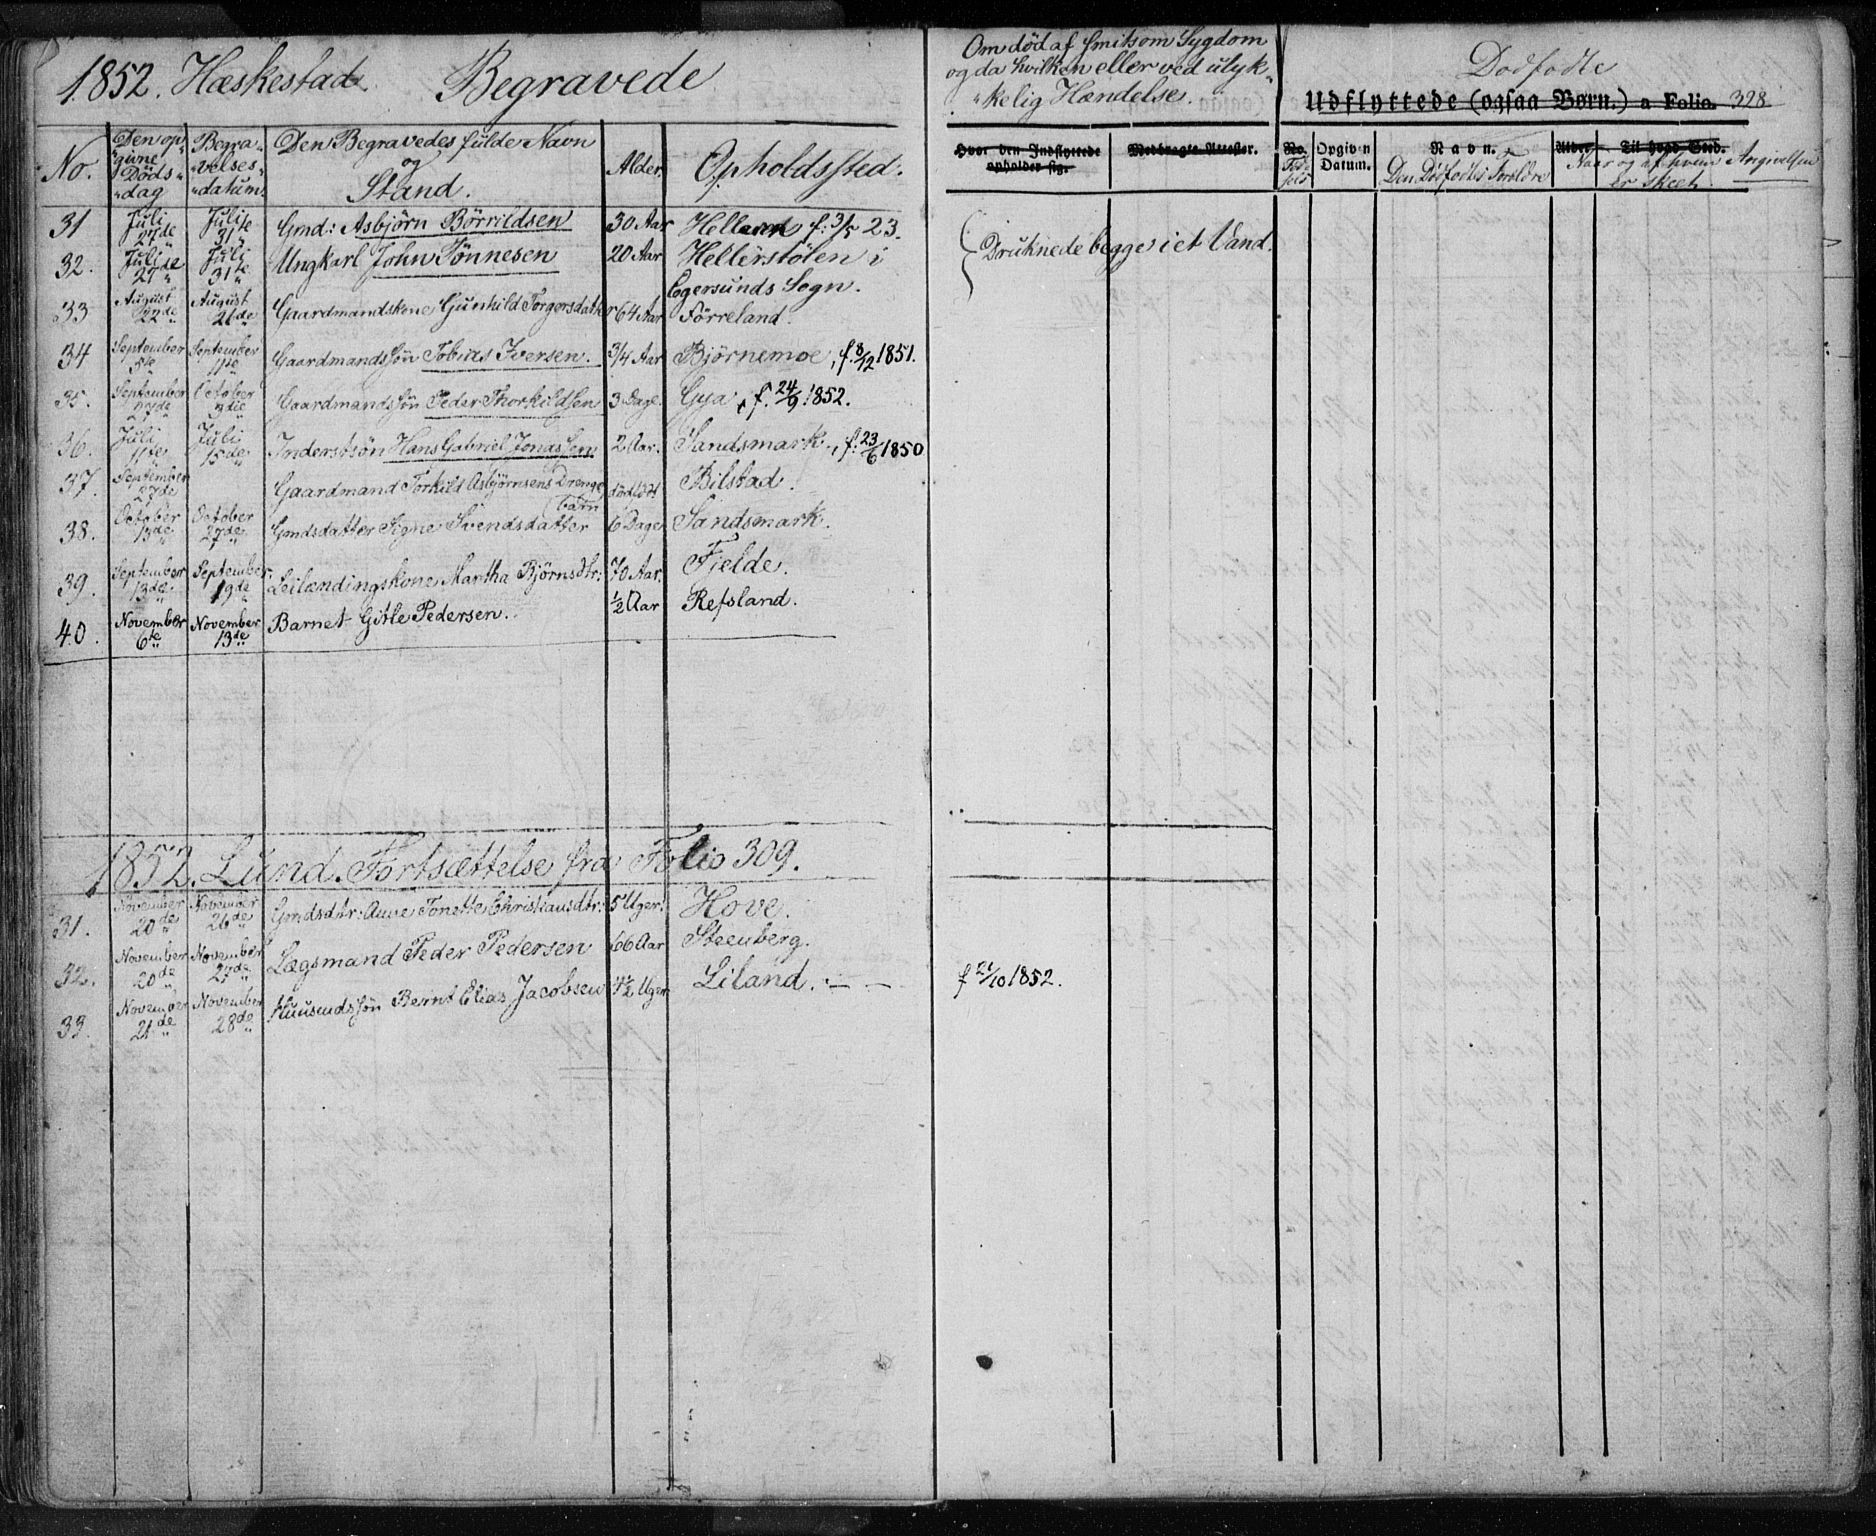 1852. Hæskestad. Begravede
No. Den op„givne Døds„dag Begra„velses„datum. Den Begravedes fulde Navn og Stand. Alder. Opholdssted.
31 Juli 27de Juli 31te Gmd: Asbjörn Börrildsen 30 Aar Helleren f: 3/5 23.
32. Juli 27de Juli 31te Ungkarl John Tönnesen 20 Aar Hellerstölen i Egersunds Sogn.
33 August 22de August 26de Gaardmandskone Gunhild Torgersdatter 64 Aar Förreland.
34 September 5te September 11te Gaardmandssön Tobias Iversen. 3/4 Aar Björnemoe, f. 8/12 1851.
35. September 27de October 3die Gaardmandssön Peder Thorkildsen 3 Dage. Gya, f. 24/9 1852.
36. Juli 11te Juli 15de Inderstsön Hans Gabriel Jonassen 2 Aar. Sandsmark., f. 23/6 1850
37. September 27de Gaardmand Torkild Asbjörnsens Drenge barn dödfödt Bilstad.
38. October 13de October 27de Gmdsdatter Signe Svendsdatter 6 Dage Sandsmark.
39. September 13de September 19de Leilændingskone Martha Björnsdtr: 70 Aar. Fjelde.
40. November 6te November 13de Barnet Gitle Pedersen. 1/2 Aar Refsland.
1852. Lund. Fortsættelse fra Folio 309.
31. November 20de November 26de Gmdsdtr: Anne Tonette Christiansdtr: 5 Uger. Hove.
32. November 20de November 27de Lægsmand Peder Pedersen 66 Aar Steenberg.
33. November 21de November 28de Huusmdssön Bernt Elias Jacobsen 4½ Uger Liland.
Om död af smitsom Sygdom og da hvilken eller ved ulyk„kelig Hændelse.
Hvor den Indflyttede opholder sig. Medbragte Attester.
Druknede begge i et Vand.
f 21/10 1852.
Dödfödte
Udflyttede (ogsaa Børn.) a Folio. 328
No. Opgiven Datum. Navn. Den Dödfödtes Forældre Alder. Til hvad Sted. Naar og af hvem Angivelsen er skeet.